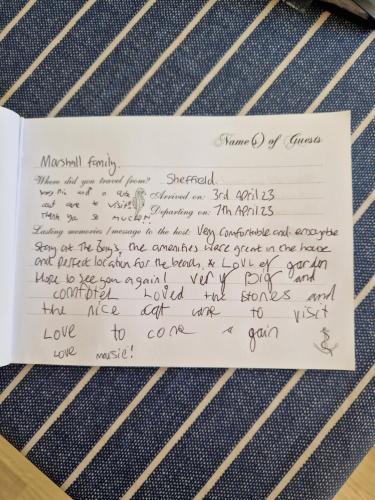 Name(s) of Guests
Marshall family.
Where did you travel from? Sheffield
very nic and a cute
cat came to visit!
Thank you so much!!!
Arrived on: 3rd April 23
Departing on: 7th April 23
Lasting memories/message to the host: Very comfortable and
stay at The Bay's, the amenities were great in the house
and perfect location for the beach, & Lovely garden
Hope to see you again! very Big and
Loved the stories and
the nice cat came to visit
Love to come a gain
Love